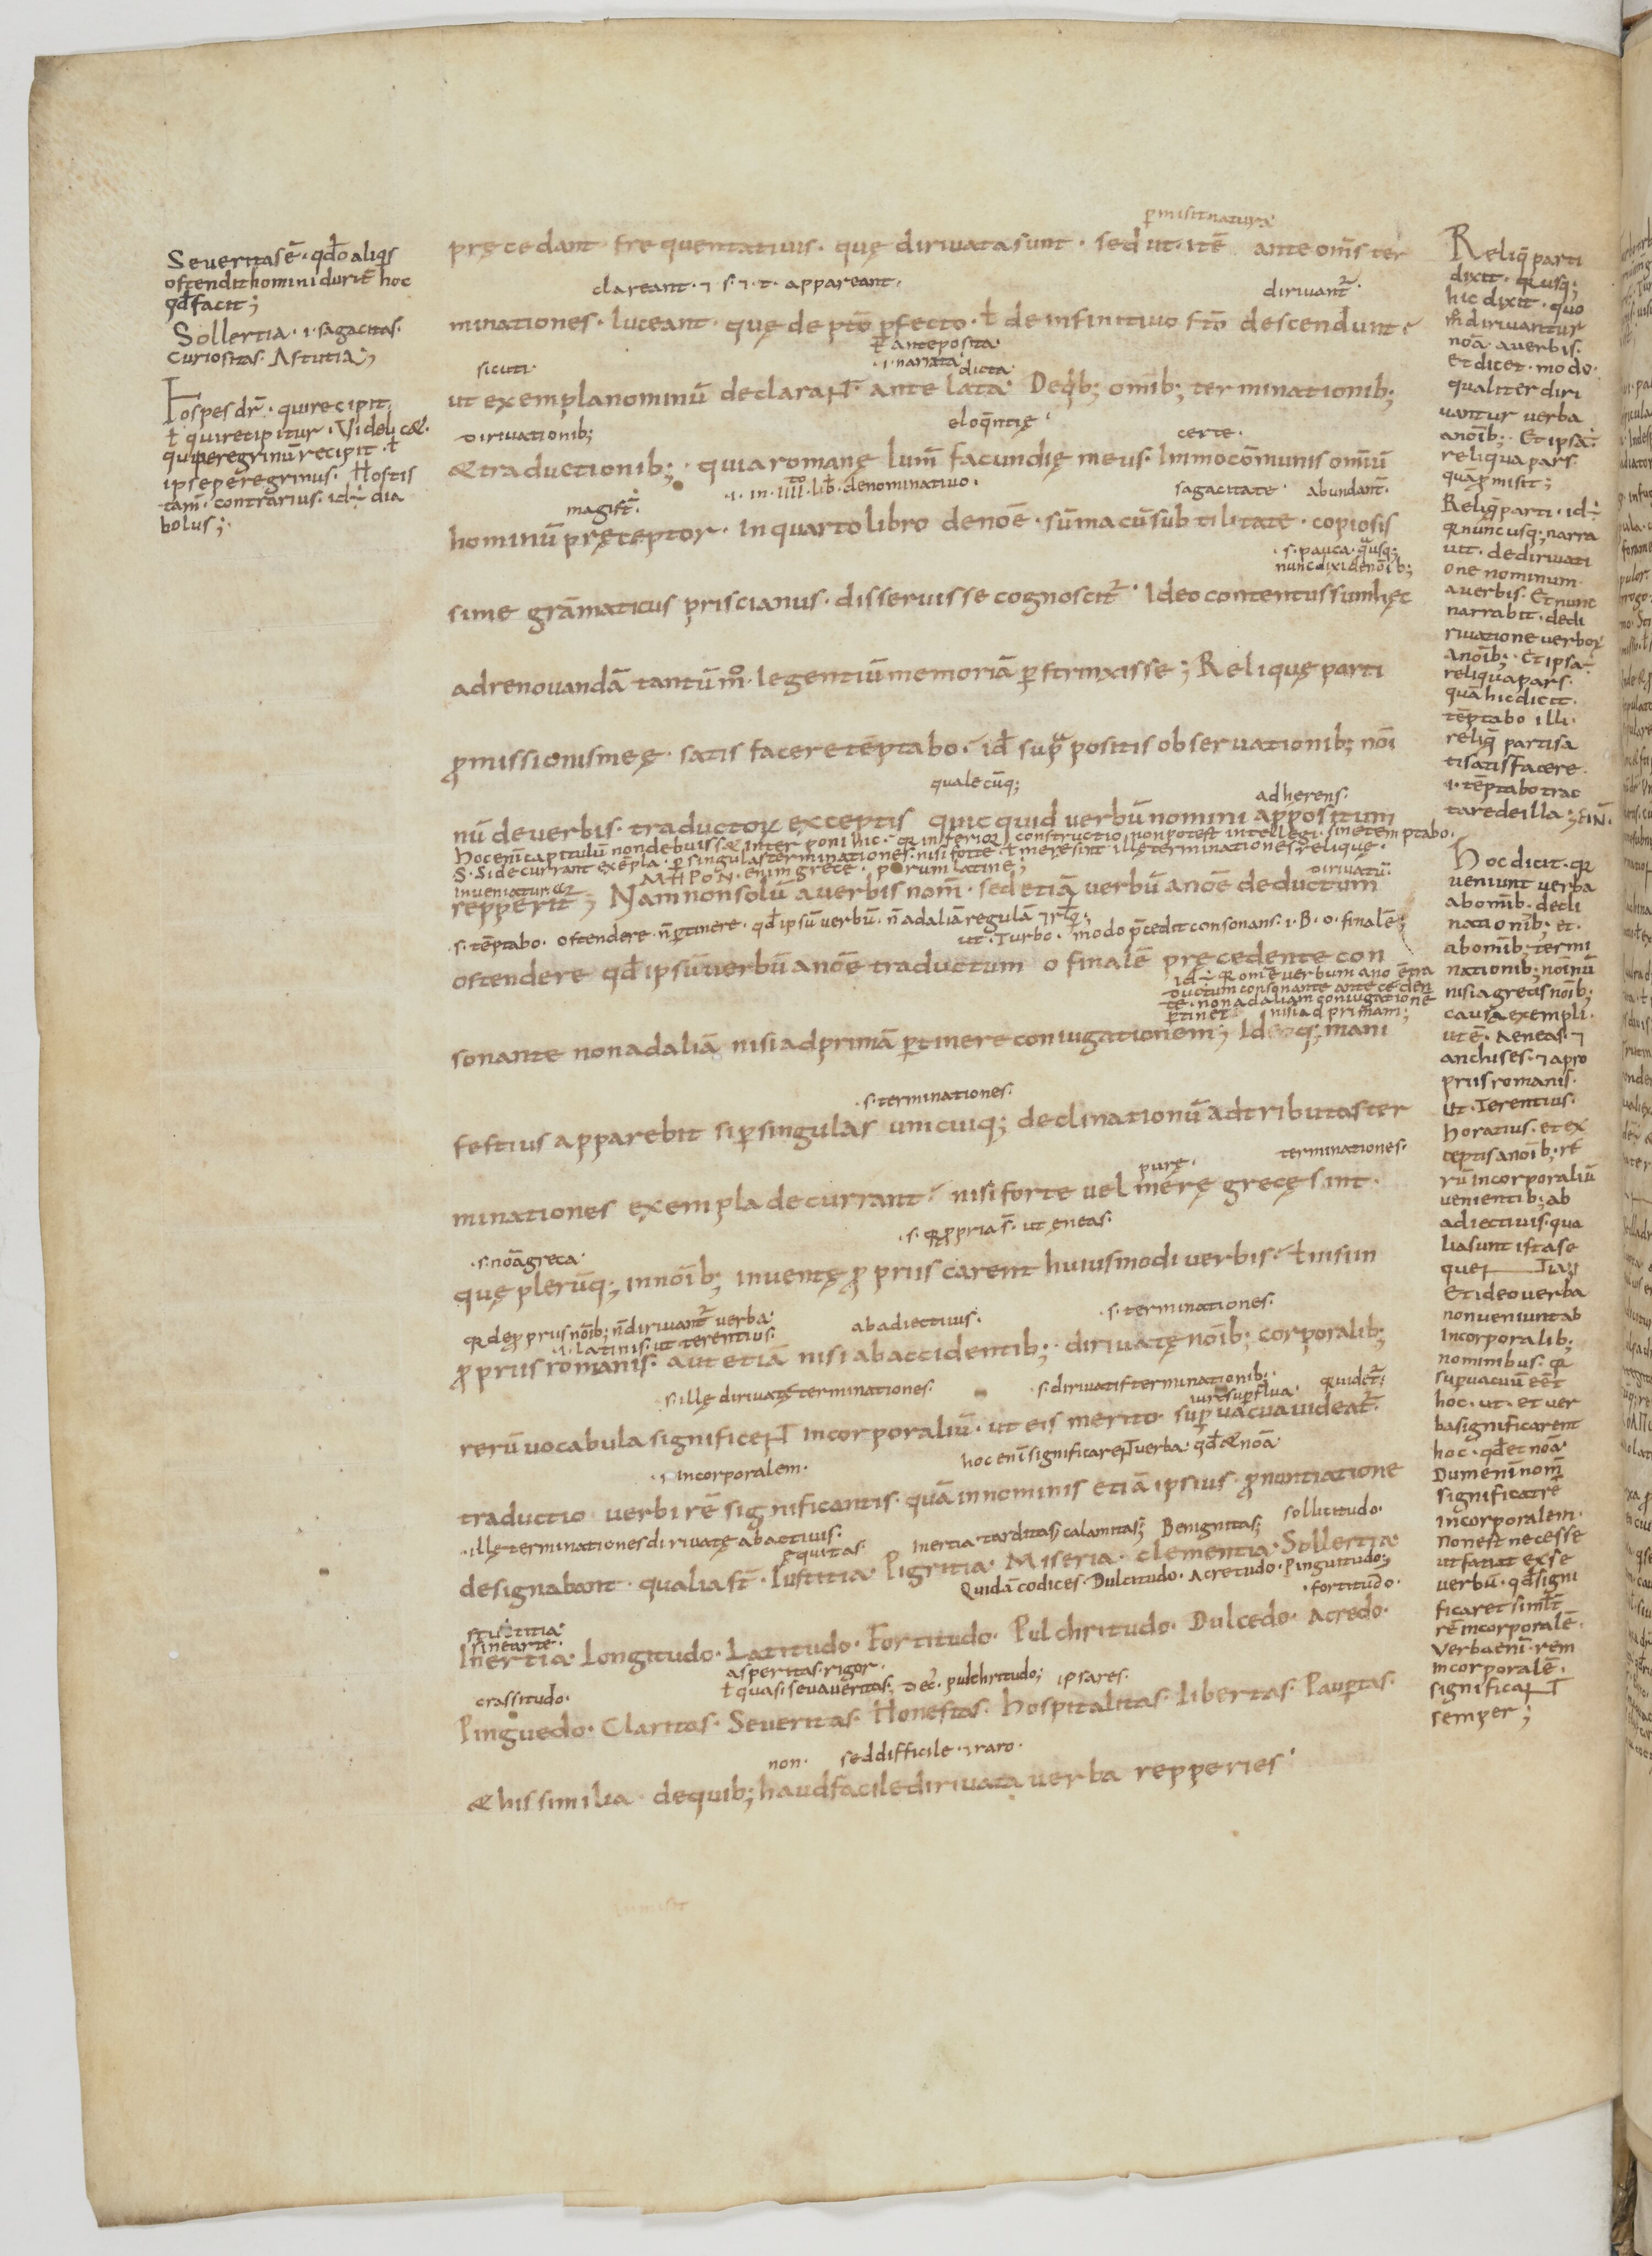 Seueritas ē· qđo aliq̇s
ostendit homini duriē hoc
qđ facit;
Sollertia· i· sagacitas·
curiositas· Astutia;
Hospes dr̄· qui recipit·
ł qui recipitur· Videlicæ·
qui peregrinū recipit· ł
ipse peregrinus· Hostis
tam̄· contrarius· id÷ dia
bolus;
p̱misit naturę
pręcedant frequentatiuis· quę diriuata sunt· sed ut· itē ante om̄s ter
clareant· ⁊ s· ⁊· t· appareant·
diriuant᷑·
minationes· luceant· quę de ptō p̱fecto· ł de infinitiuo ftō descendunt·
ł anteposita·
·i· narrata· dicta·
sicuti·
ut exempla nominū declarant· ante lata· De qb; omīb; terminationib;
eloq̄ntię·
diriuationib;
certe·
& traductionib;· quia romanę lum̄ facundię meus· Immo cōmunis omiū
·i· in· IIII to· lib̄· de nominatiuo·
magist᷑·
sagacitate· abundant̄·
hominū pręceptor· In quarto libro de noē· sūma cū subtilitate· copiosis
·s· pauca· quusq;
nunc dixi de noīb;
sime grāmaticus priscianus· disseruisse cognoscit᷑· Ideo contentus sum hęc
ad renouandā tantū m̊· legentiū memoriā p̱strinxisse; Reliquę parti
ꝓmissionis meę· satis facere tēptabo· id supᵃ positis obseruationib; noī
quale cūq;
adherens·
nū de uerbis· traductoꝝ exceptis quicquid uerbū nomini appositum
Hoc enī capitulū non debuiss& interponi hic· quia inferior constructio non potest intellegi· sine temptabo·
S· Si decurrant exēpla· p̱ singulas terminationes· nisi forte· ł mere sint illę terminationes relique·
MHPON· enim grece· purum latine;
inueniatur
diriuatū·
repperit; Nam non solū a uerbis nom̄· sed etiā uerbū a noē deductum
·s· tēptabo· ostendere· n̄ p̱tinere· qđ ipsū uerbū· n̄ ad aliā regulā
ut· Turbo· modo p̄cedit consonans· i· B· o· finalē;
ostendere qđ ipsū uerbū a noē traductum o finalē pręcedente con
id÷ uerbum a noē tra
ductum consonante anteceden
te· non ad aliam coniugationē
p̱tinet nisi ad primam;
sonante non ad aliā nisi ad primā p̱tinere coniugationem; Id mani
·s· terminationes·
festius apparebit si p̱ singulas unicuiq; declinationū adtributas ter
purę·
terminationes·
minationes exempla decurrant· nisi forte uel merę grecę sint·
·s· quia ꝓpria s̄· ut eneas·
·s· noā greca·
quę plerūq; in noīb; inuentę ꝓpriis carent huiusmodi uerbis· ł nisi in
quia de ꝓpriis noīb; n̄ diriuant᷑ uerba·
·i· latinis· ut terentius·
ab adiectiuis·
·s· terminationes·
ꝓpriis romanis· aut etiā nisi ab accidentib;· diriuatę noīb; corporalib;
·s· illę diriuatę terminationes·
·s· diriuatis terminationib;·
iure sup̱flua· quidet᷑·
rerū uocabula significent incorporaliū· ut eis merito sup̱uacua uideat᷑·
·s· incorporalem·
hoc enī significarent uerba· qđ & noā·
traductio uerbi rē significantis· quā in nominis etiā ipsius ꝓnuntiatione
·illę terminationes diriuatę ab actiuis·
ęquitas·
Inertia· tarditas; calamitas; Benignitas; sollicitudo·
designabant· qualia st̄· Iustitia· Pigritia· Miseria· clementia· Sollertia·
Quidā codices· Dulcitudo· Acretudo· Pinguitudo;
·fortitudo·
stultitia·
sine arte·
Inertia· Longitudo· Latitudo· Fortitudo· Pulchritudo· Dulcedo· Acredo·
asperitas· rigor·
ł quasi seua ueritas; Dec̄· pulchritudo; ipsa res·
crassitudo·
Pinguedo· Claritas· Seueritas· Honestas· hospitalitas· libertas· Paup̱tas·
non· sed difficile· ⁊ raro·
& his similia· de quib; haud facile diriuata uerba repperies·
Reliq̄ parti
dixit· qusq;
hic dixit· quo
m̄ diriuantur
noā· a uerbis·
Et dicet· modo·
qualiter diri
uantur uerba
a noīb;· Et ipsa÷
reliqua pars·
quā p̱misit;
Reliq̄ parti· id÷
quia nunc usq; narra
uit· de diriuati
one nominum·
a uerbis· Et nunc
narrabit· de di
riuatione uerboꝝ
a noīb;· Et ipsa÷
reliqua pars·
quā hic dicit·
tēptabo illi·
reliq̄ parti sa
tis satisfacere·
·i· tēptabo trac
tare de illa; FIN̄·
Hoc dicit· quia
ueniunt uerba
ab omīb· decli
nationib; et·
ab omīb; termi
nationib; noīnū
nisi a grecis noīb;
causa exempli·
ut ē· Aeneas· ⁊
anchises· ⁊ a pro
priis romanis·
ut· Terentius·
horatius· et ex
ceptis a noīb; re
rū incorporaliū
uenientib; ab
adiectiuis· qua
lia sunt ista se
quentia;
Et ideo uerba
non ueniunt ab
Incorporalib;
nominibus· quia
sup̱uacuū eēt
hoc· ut· et uer
ba significarent
hoc· qđ et noā·
Dum enī nom̄
significat rē
incorporalem·
Non est necesse
ut faciat ex se
uerbū· qđ signi
ficaret similit̄
rē incorporalē·
Verba enī· rem
incorporalē·
significant
semper;